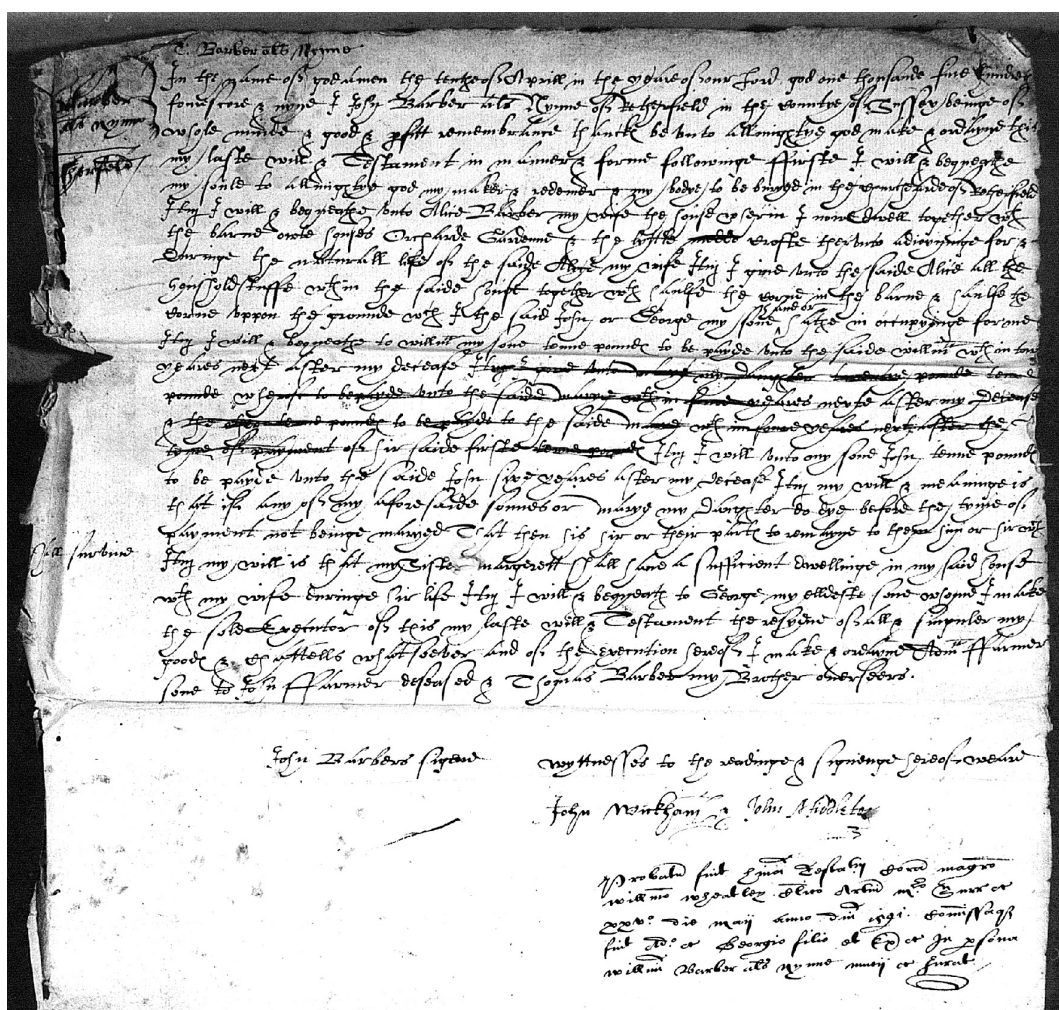 T. Barber als Nynne
In the name of god amen the tenthe of Aprill in the yeare of our Lord god one thousande five hundred
Barber
fourescore & nyne I John Barber als Nynne of Retherfield in the Countye of Sussex beinge of
als nynne
whole minde & good & pfitt remembrance thanck be unto allmightye god make & ordayne this
my laste will & Testament in manner & forme followinge ffirste I will & bequeathe
my soule to allmightye god my maker & redemer & my bodye to be buryed in the churcheyarde of Retherfield
Itm I will & bequeathe unto Alice Barber my wife the house wherin I now dwell together wth
the barne oute houses Orcharde Gardenne & the lyttle crofte therunto adioyninge for &
duringe the naturall life of the saide Alyce my wife Itm I give unto the saide Alice all the
housholdstuffe wthin the saide house together wth haulfe the corne in the barne & haulfe the
corne uppon the grounde wch I the said John or George my sone hathe in occupyinge for me
Itm I will & bequeathe to willm my sone tenne poundes to be payde unto the saide willm wthin
yeares next after my decease Itm I give unto marye my daughter poundes
pounde wherof to be payde unto the saide marye wthin yeares nexte after my decease
& the other tenne poundes to be payde to the saide marye wthin foure yeares next after the
tyme of payment of hir saide firste tenne poundes Itm I will unto my sone John tenne poundes
to be payde unto the saide John sixe yeares after my decease Itm my will & meaninge is
that if any of my aforesaide sonnes or marye my daughter do dye before the tyme of
payment not beinge maryed That then his hir or their part to remayne to him or hir wch
shall survive
Itm my will is that my sister margerett shall have a sufficient dwellinge in my said house
wth my wife duringe hir life Itm I will & bequeath to George my elldeste sone whome I make
the sole Executor of this my laste will & Testament the resydue of all & singuler my
goodes & Chattells whatsoever and of the execution hereof I make & ordayne ffarmer
sone to John ffarmer deseased & Thomas Barber my Brother overseers.
John Barbers signe
wyttnesses to the readinge & signenge hereof weare
John Wickham & John Middleton
Probatu fuit Testm coram magro
willmo wheatley clico
xxvo die maii anno dni 1591
fuit Georgio filio et Ex in psona
willmi Barber als nynne